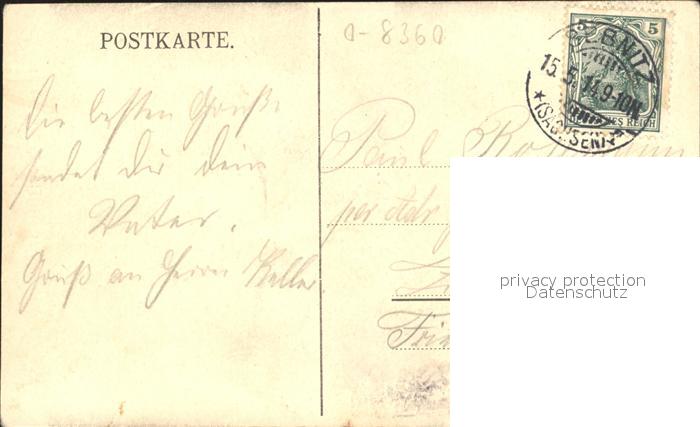 POSTKARTE.
0-8360
5
SEBNITZ
15.5.14.9-10N.
*(SACHSEN)*
REICH
Die besten Grüße
sendet dir dein
Vater.
Gruß an Herrn Keller
Paul
per Adr
privacy protection
Datenschutz